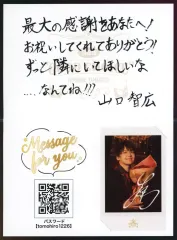 最大の感謝をあなたへ!
お祝いしてくれてありがとう!
ずっと隣にいてほしいな
....なんてね!!!
山口 智広
Message
for you
パスワード
[tomohiro1226]